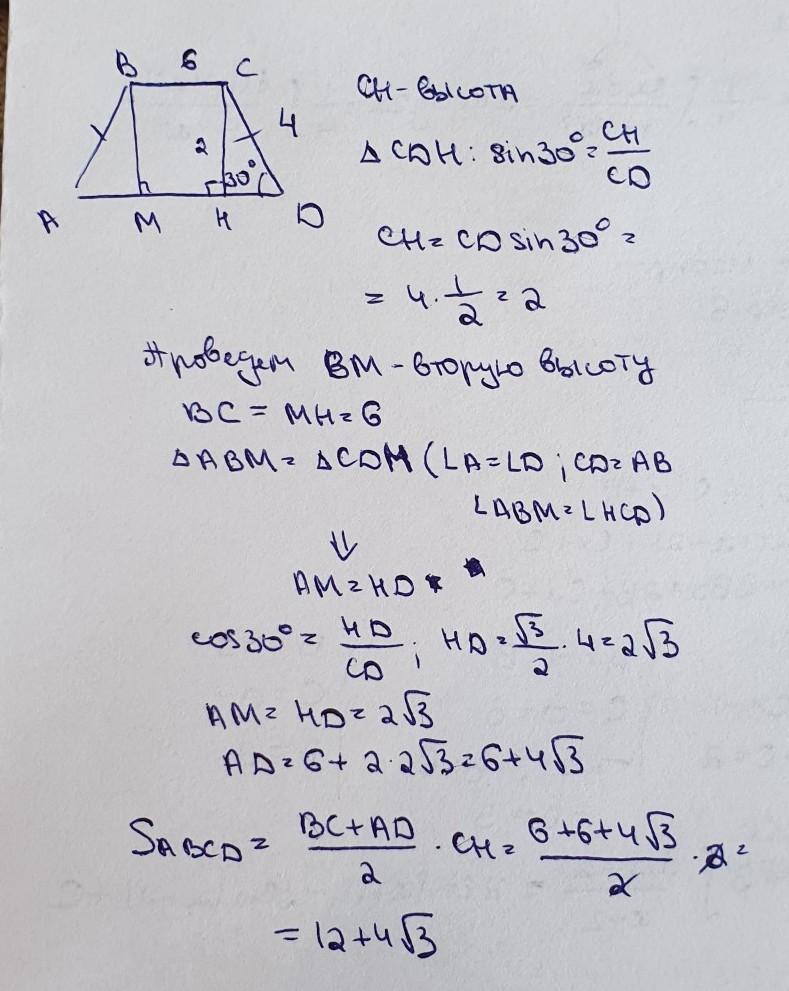 B 6 C
4
2
30°
A M H D
CH - высота
△CDH: sin30° = CH/CD
CH = CD sin30° =
= 4 · 1/2 = 2
Проведем BM - вторую высоту
BC = MH = 6
△ABM = △CDH (∠A = ∠D ; CD = AB
∠ABM = ∠HCD)
⇓
AM = HD
cos30° = HD/CD ; HD = √3/2 · 4 = 2√3
AM = HD = 2√3
AD = 6 + 2 · 2√3 = 6 + 4√3
S_ABCD = (BC + AD)/2 · CH = (6 + 6 + 4√3)/2 · 2 =
= 12 + 4√3